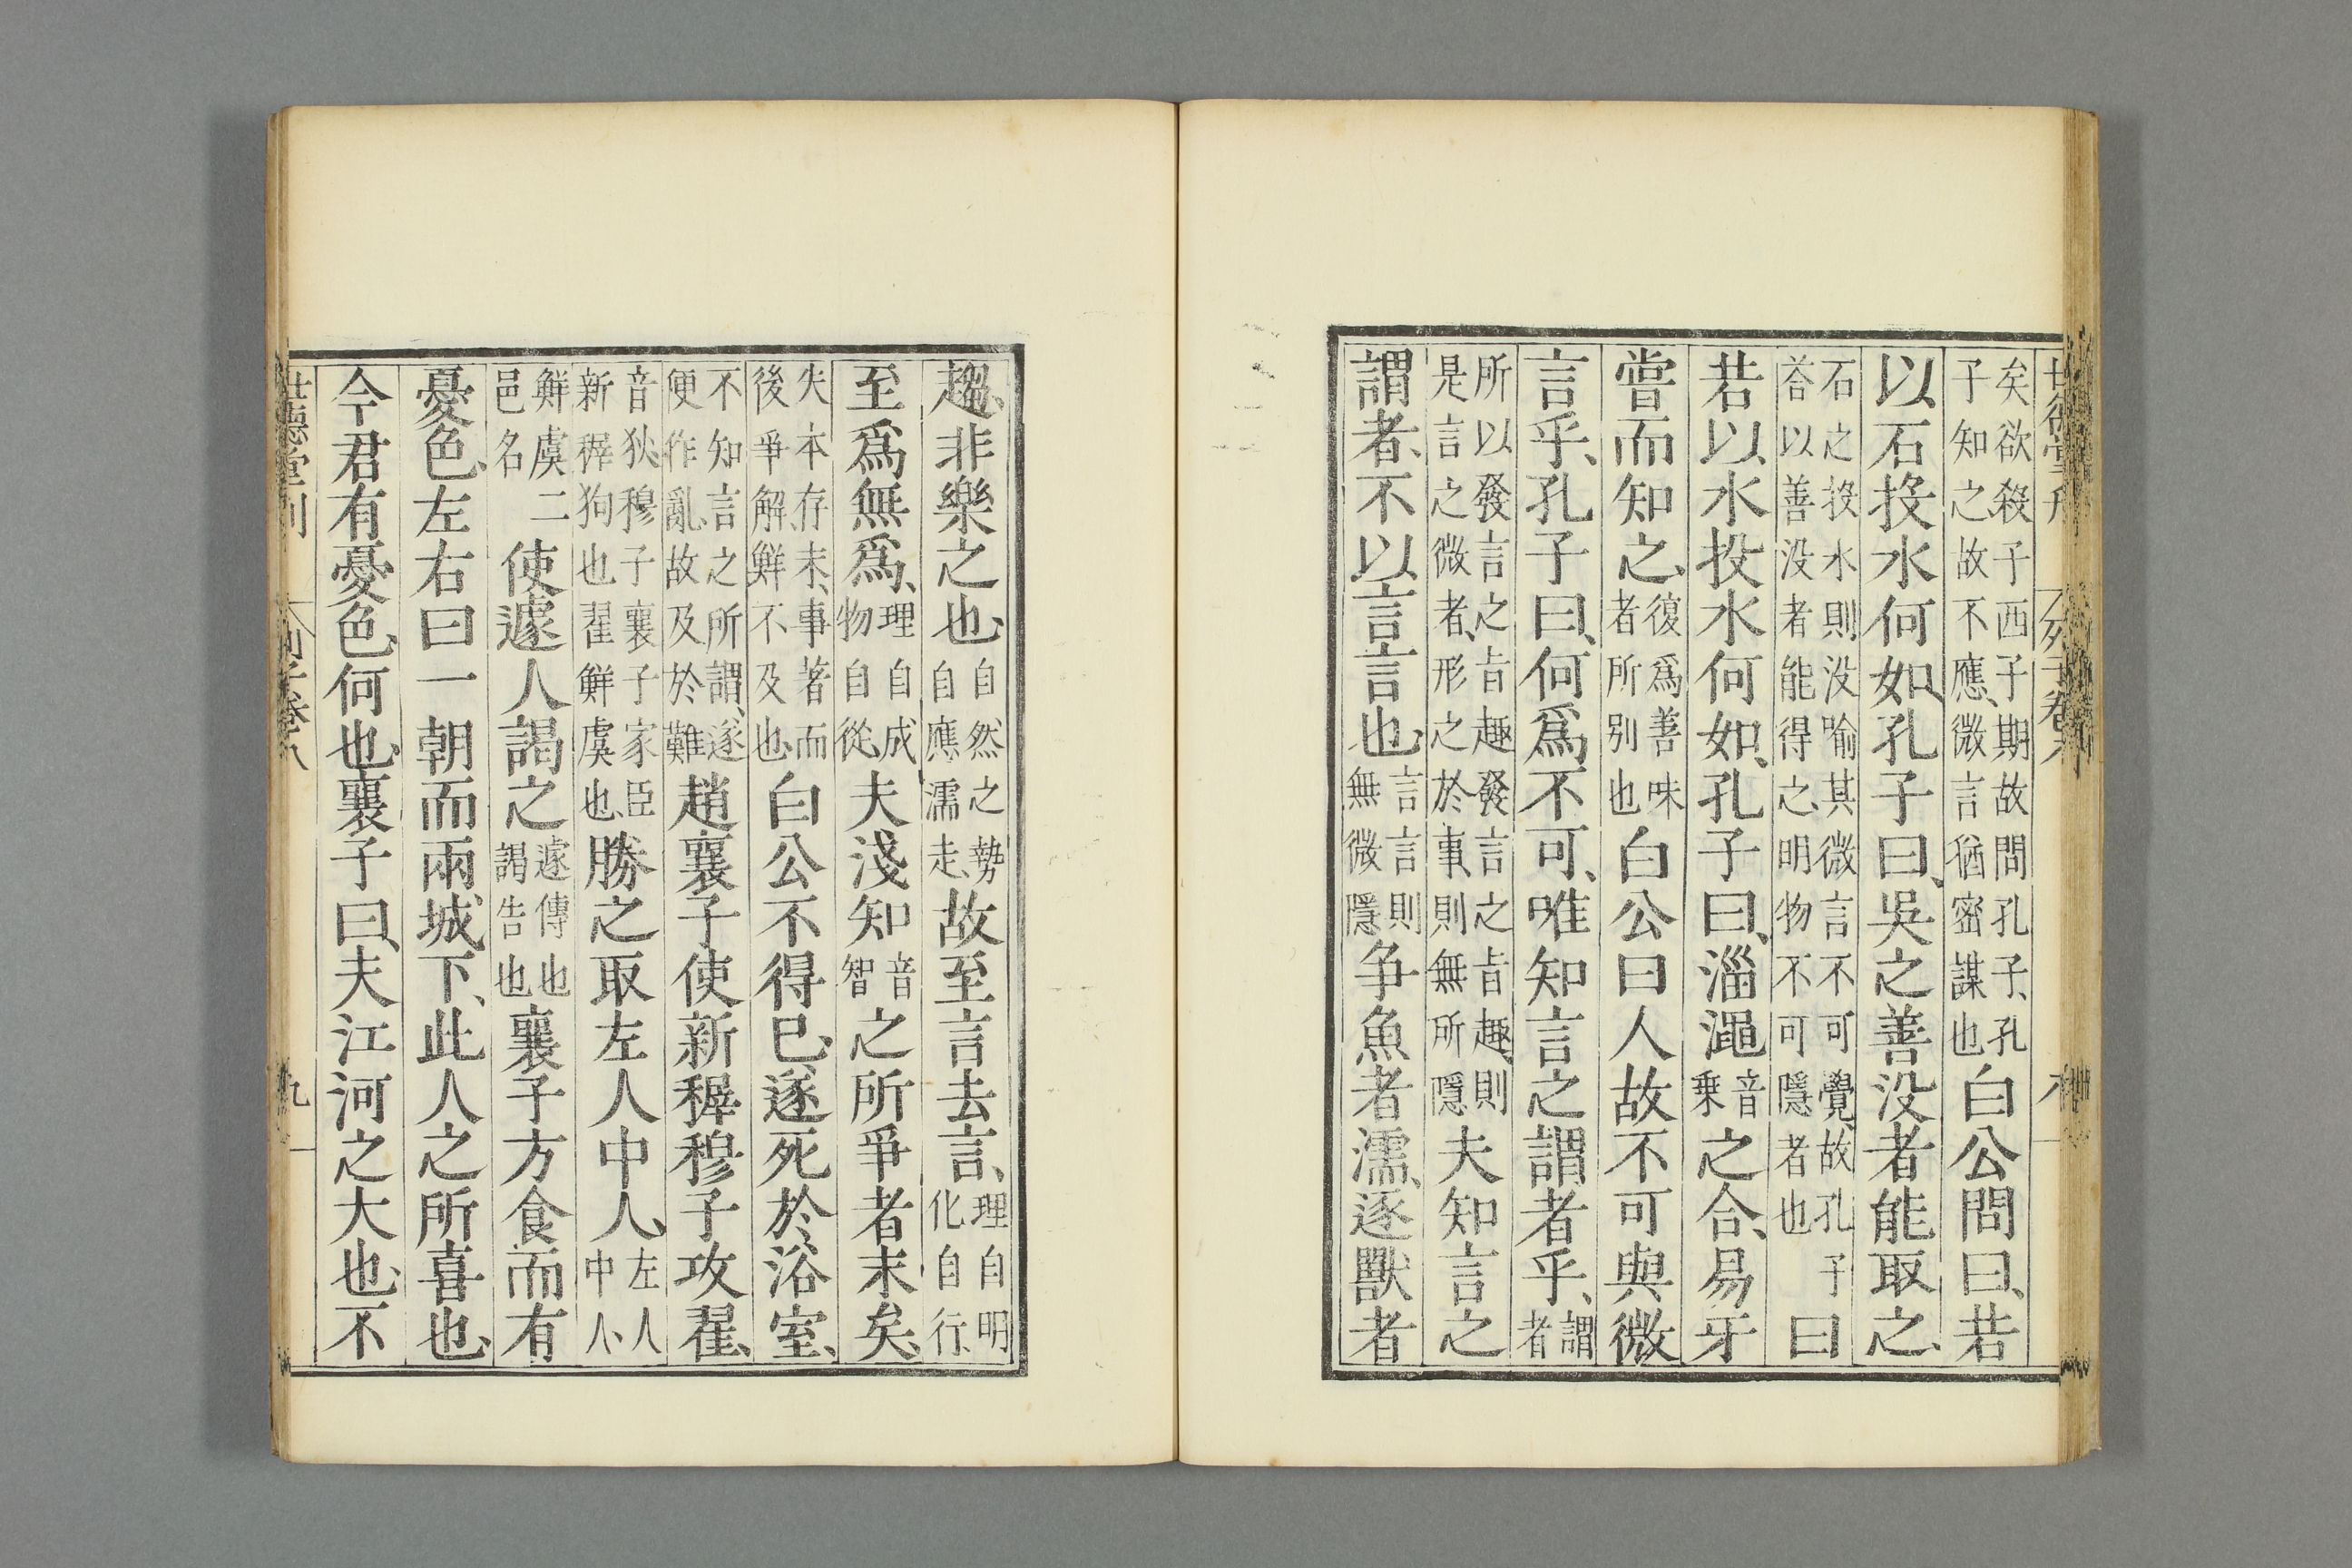 世德堂刊 列子卷八 八
矣欲殺子西子期故問孔子、孔
子知之、故不應、微言猶密謀也
白公問曰、若
以石投水何如、孔子曰、吳之善没者能取之、
石之投水則没喻其微言不可覺、故孔子
荅以善没者能得之、明物不可隱者也
曰
若以水投水何如、孔子曰、淄澠
音
乗
之合、易牙
嘗而知之、
復爲善味
者所别也
白公曰人故不可與微
言乎、孔子曰、何爲不可、唯知言之謂者乎、
謂
者
所以發言之旨趣發言之旨趣、則
是言之微者、形之於事、則無所隱
夫知言之
謂者、不以言言也
言言則
無微隱
争魚者濡、逐獸者
趨、非樂之也、
自然之勢
自應濡走、
故至言去言、
理自明
化自行、
至爲無爲、
理自成
物自從、
夫淺知
音
智
之所爭者末矣、
失本存末、事著而
後爭解、鮮不及也、
白公不得已、遂死於浴室、
不知言之所謂、遂
便作亂、故及於難
趙襄子使新穉穆子攻翟、
音狄、穆子襄子家臣
新穉狗也翟鮮虞也、
勝之取左人中人、
左人
中人、
鮮虞二
邑名
使遽人謁之
遽傳也
謁告也
襄子方食而有
憂色、左右曰一朝而兩城下、此人之所喜也、
今君有憂色、何也、襄子曰、夫江河之大也、不
世德堂刊 列子卷八 九